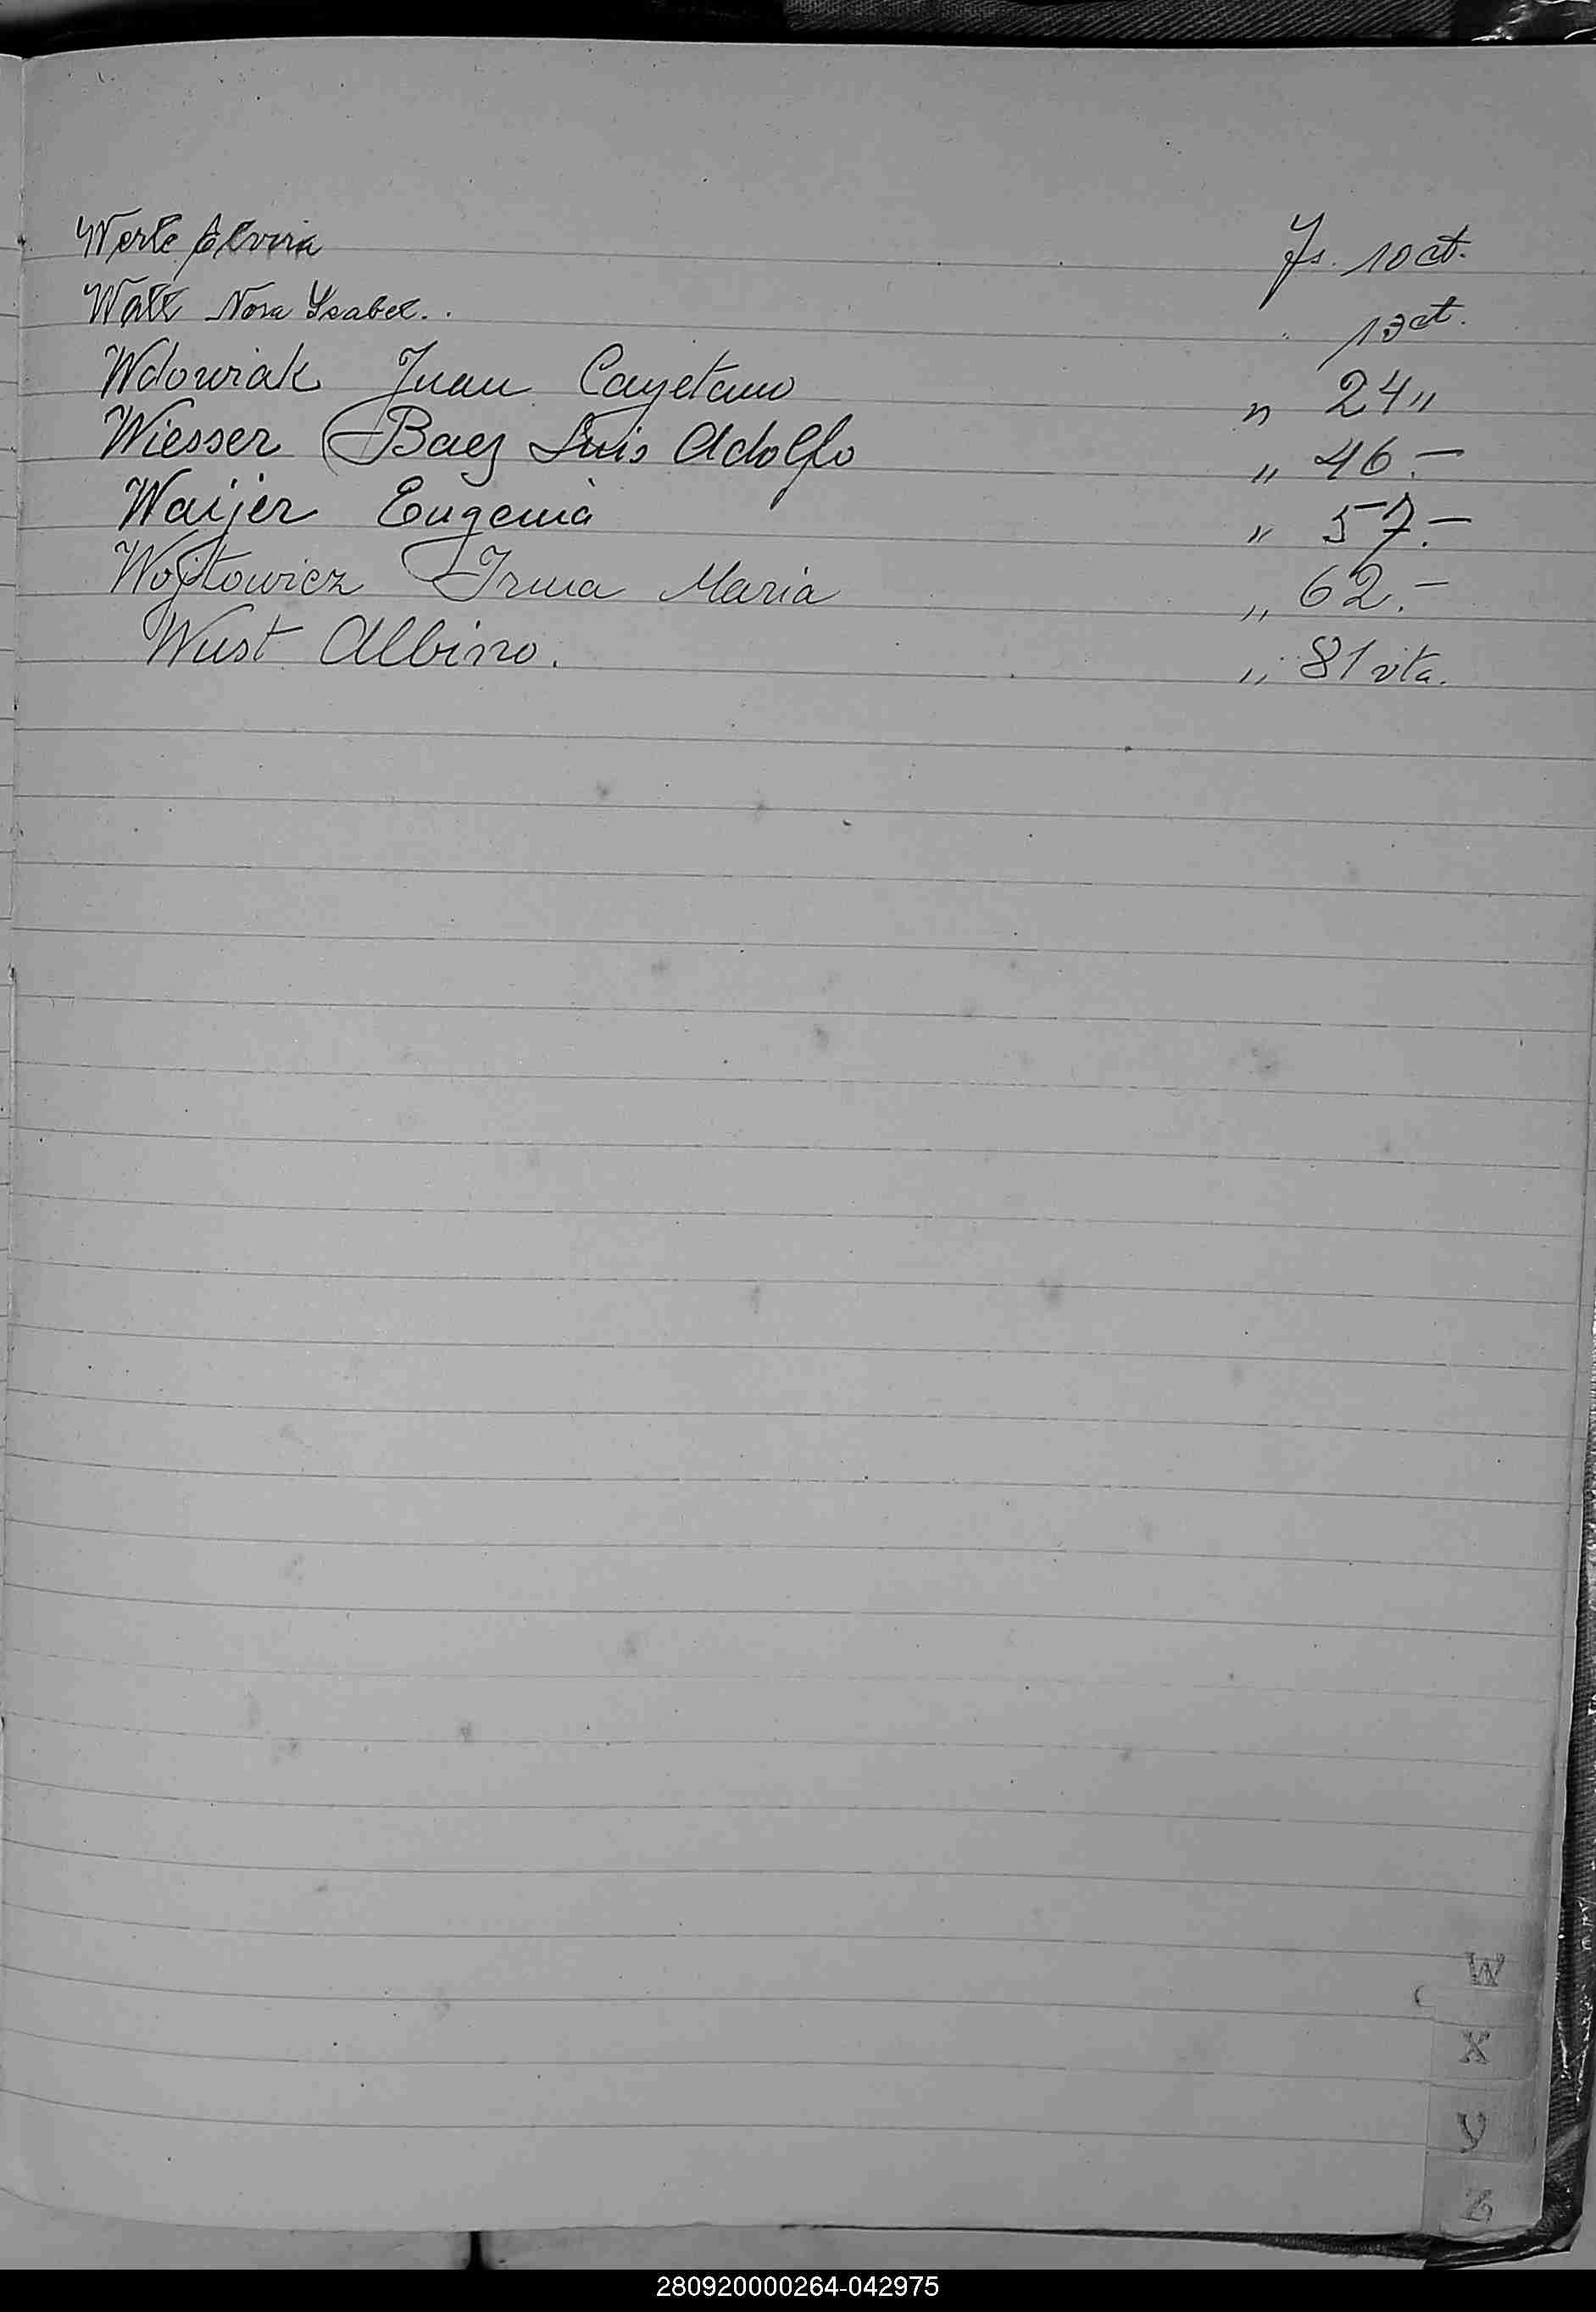 Werle Elvira Fs. 10 ct.
Wall Nora Ysabel. . " 13 ct.
Wdowiak Juan Cayetano " 24 "
Wiesser Baez Luis Adolfo " 46.—
Waijer Eugenia " 57.—
Wojtowicz Irma Maria " 62.—
Wust Albino. " 81 vta.
W
X
Y
Z
280920000264-042975